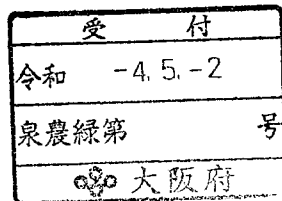 受付
令和 -4.5.-2
泉農緑第 号
大阪府